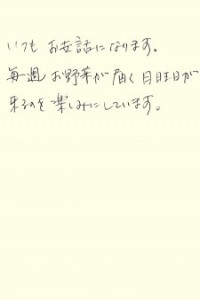 いつもお世話になります。
毎週お野菜が届く日曜日が
来るのを楽しみにしています。